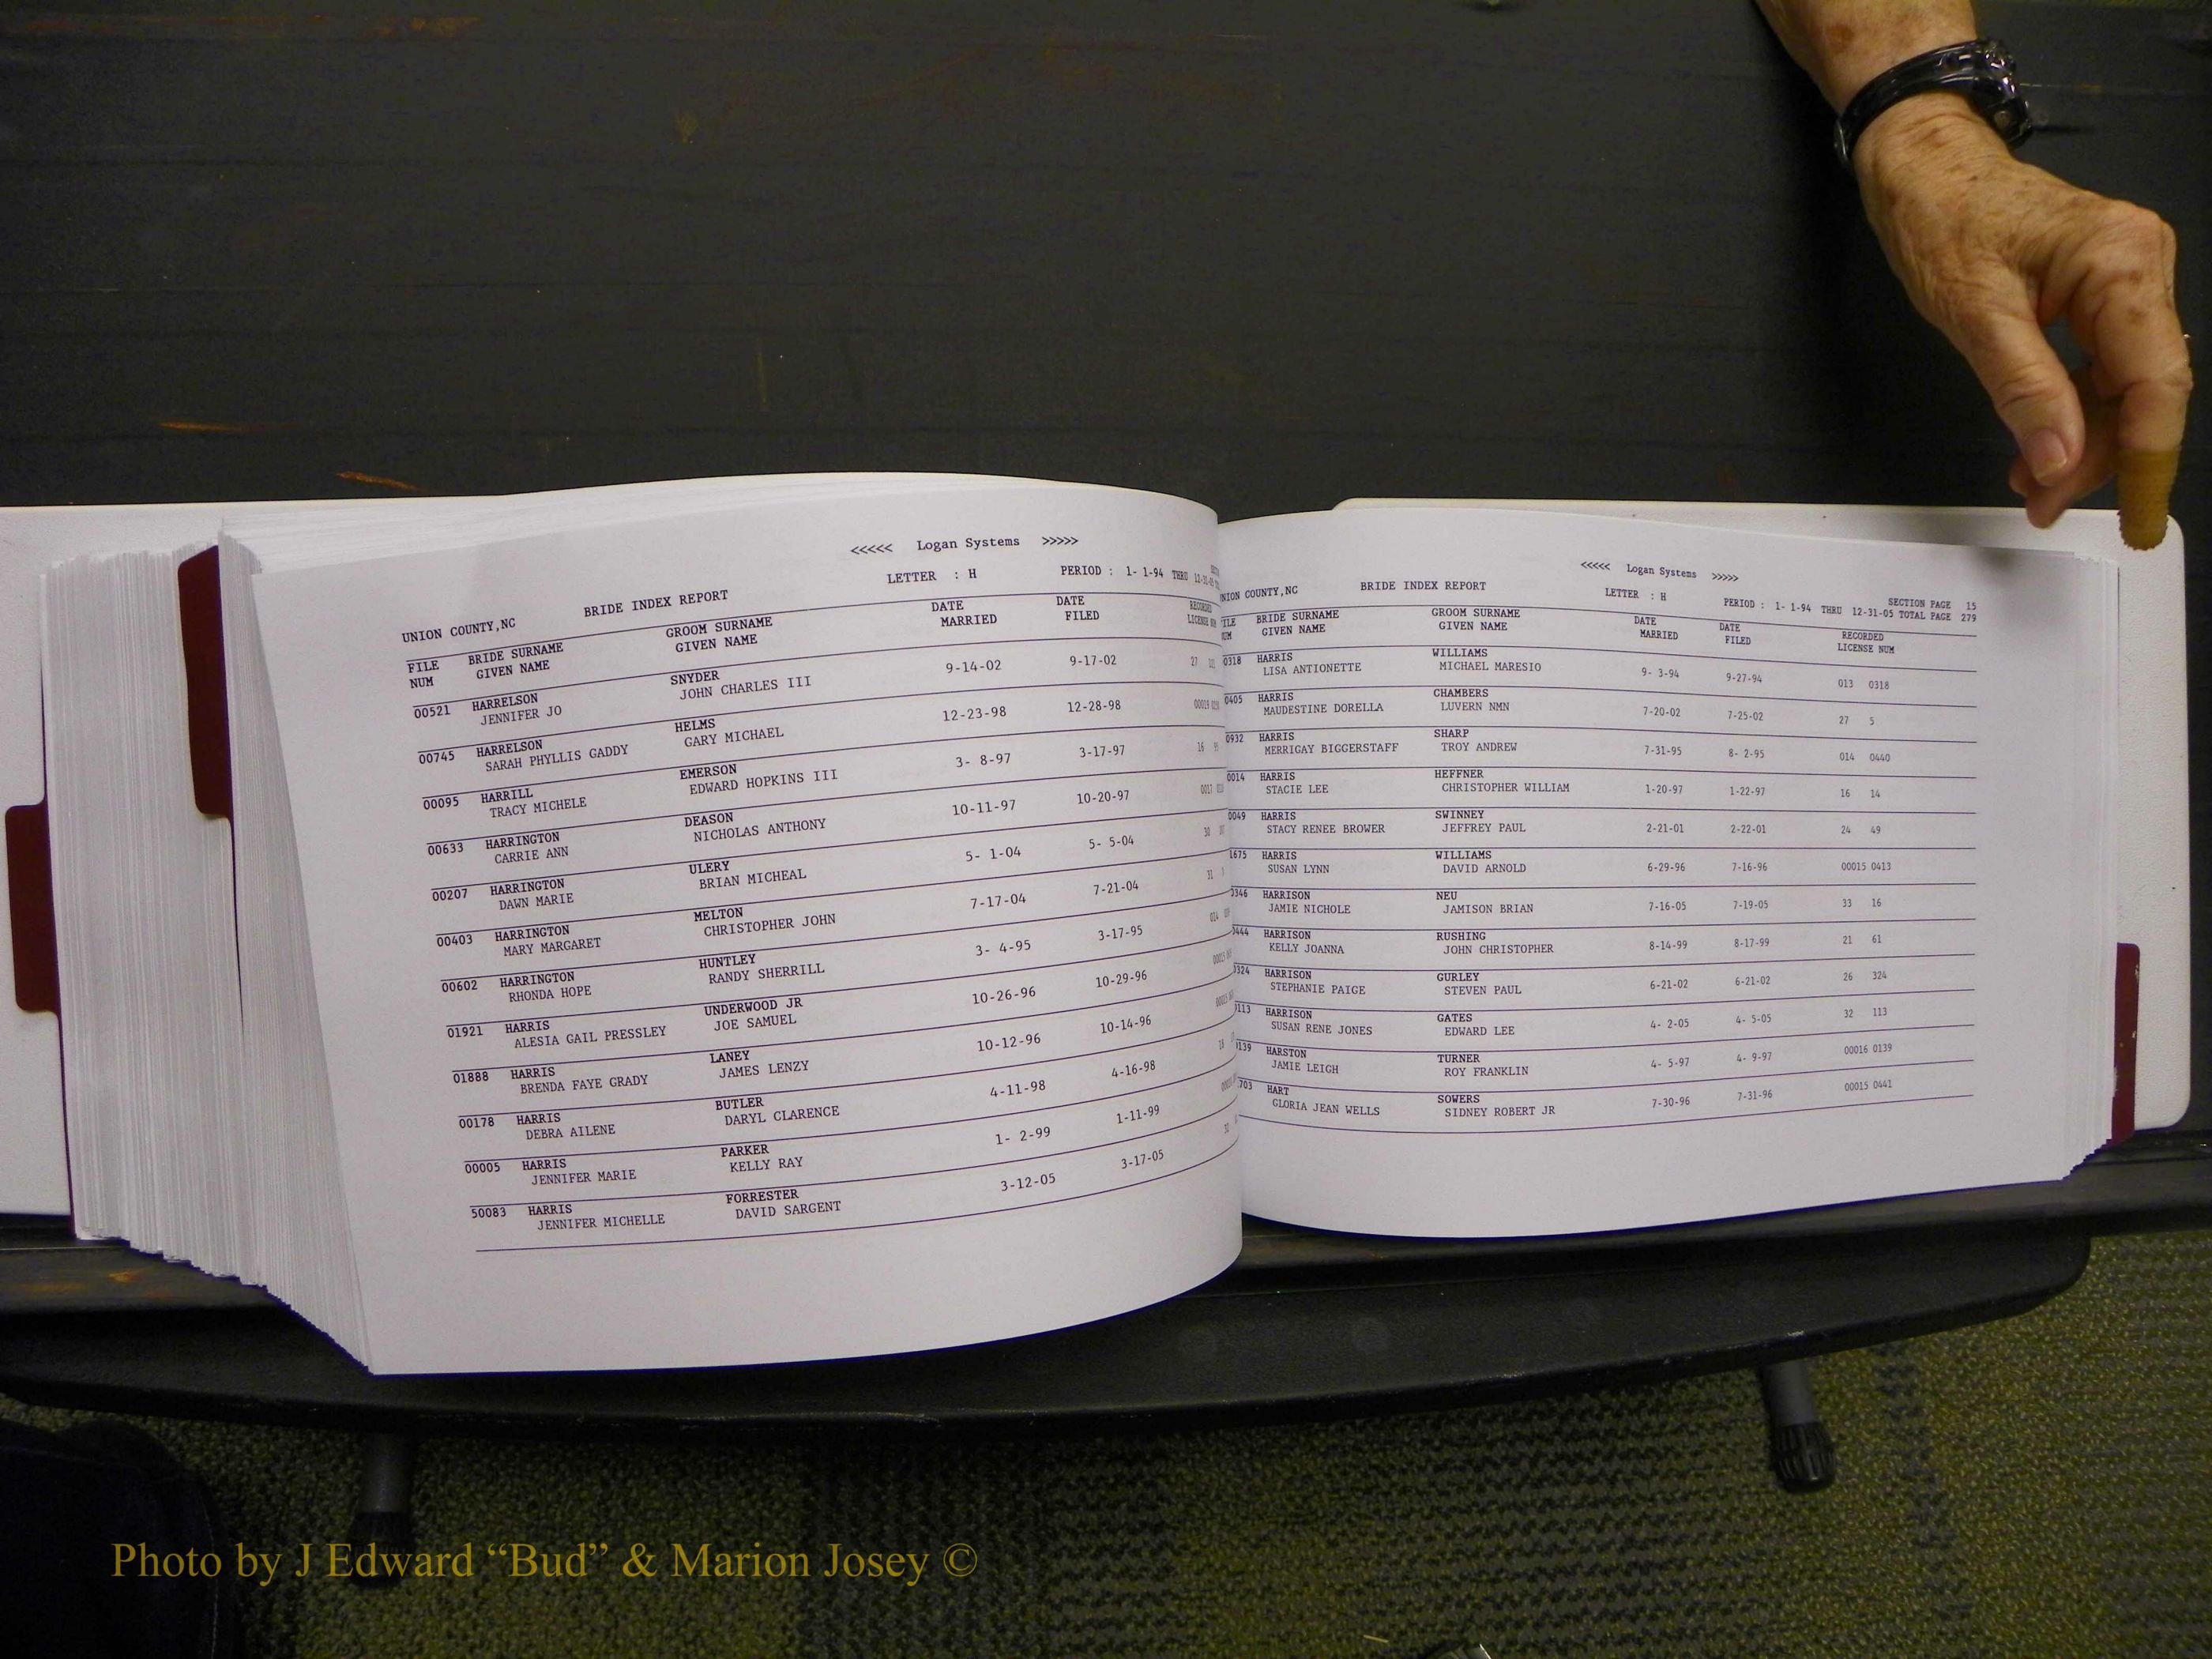 <<<<< Logan Systems >>>>>
UNION COUNTY,NC BRIDE INDEX REPORT LETTER : H PERIOD : 1- 1-94 THRU
FILE BRIDE SURNAME GROOM SURNAME DATE DATE RECORDED
NUM GIVEN NAME GIVEN NAME MARRIED FILED LICENSE
00521 HARRELSON SNYDER 9-14-02 9-17-02 27
JENNIFER JO JOHN CHARLES III
00745 HARRELSON HELMS 12-23-98 12-28-98 00019
SARAH PHYLLIS GADDY GARY MICHAEL
00095 HARRILL EMERSON 3- 8-97 3-17-97 16
TRACY MICHELE EDWARD HOPKINS III
00633 HARRINGTON DEASON 10-11-97 10-20-97 0017
CARRIE ANN NICHOLAS ANTHONY
00207 HARRINGTON ULERY 5- 1-04 5- 5-04 30
DAWN MARIE BRIAN MICHEAL
00403 HARRINGTON MELTON 7-17-04 7-21-04 31
MARY MARGARET CHRISTOPHER JOHN
00602 HARRINGTON HUNTLEY 3- 4-95 3-17-95 014
RHONDA HOPE RANDY SHERRILL
01921 HARRIS UNDERWOOD JR 10-26-96 10-29-96
ALESIA GAIL PRESSLEY JOE SAMUEL
01888 HARRIS LANEY 10-12-96 10-14-96
BRENDA FAYE GRADY JAMES LENZY
00178 HARRIS BUTLER 4-11-98 4-16-98 18
DEBRA AILENE DARYL CLARENCE
00005 HARRIS PARKER 1- 2-99 1-11-99
JENNIFER MARIE KELLY RAY
50083 HARRIS FORRESTER 3-12-05 3-17-05 32
JENNIFER MICHELLE DAVID SARGENT
<<<<< Logan Systems >>>>>
SECTION PAGE 15
UNION COUNTY,NC BRIDE INDEX REPORT LETTER : H PERIOD : 1- 1-94 THRU 12-31-05 TOTAL PAGE 279
FILE BRIDE SURNAME GROOM SURNAME DATE DATE RECORDED
NUM GIVEN NAME GIVEN NAME MARRIED FILED LICENSE NUM
0318 HARRIS WILLIAMS 9- 3-94 9-27-94 013 0318
LISA ANTIONETTE MICHAEL MARESIO
0405 HARRIS CHAMBERS 7-20-02 7-25-02 27 5
MAUDESTINE DORELLA LUVERN NMN
0932 HARRIS SHARP 7-31-95 8- 2-95 014 0440
MERRIGAY BIGGERSTAFF TROY ANDREW
0014 HARRIS HEFFNER 1-20-97 1-22-97 16 14
STACIE LEE CHRISTOPHER WILLIAM
0049 HARRIS SWINNEY 2-21-01 2-22-01 24 49
STACY RENEE BROWER JEFFREY PAUL
1675 HARRIS WILLIAMS 6-29-96 7-16-96 00015 0413
SUSAN LYNN DAVID ARNOLD
0346 HARRISON NEU 7-16-05 7-19-05 33 16
JAMIE NICHOLE JAMISON BRIAN
0444 HARRISON RUSHING 8-14-99 8-17-99 21 61
KELLY JOANNA JOHN CHRISTOPHER
0324 HARRISON GURLEY 6-21-02 6-21-02 26 324
STEPHANIE PAIGE STEVEN PAUL
0113 HARRISON GATES 4- 2-05 4- 5-05 32 113
SUSAN RENE JONES EDWARD LEE
0139 HARSTON TURNER 4- 5-97 4- 9-97 00016 0139
JAMIE LEIGH ROY FRANKLIN
703 HART SOWERS 7-30-96 7-31-96 00015 0441
GLORIA JEAN WELLS SIDNEY ROBERT JR
Photo by J Edward “Bud” & Marion Josey ©